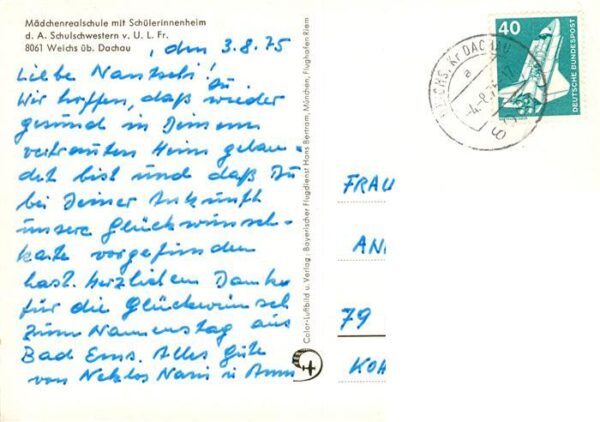 Mädchenrealschule mit Schülerinnenheim
d. A. Schulschwestern v. U. L. Fr.
8061 Weichs üb. Dachau
, den 3.8.75
Liebe
Du
Wir hoffen, daß wieder
gesund in Deinem
vertrauten Heim gelan-
det bist und daß Du
bei Deiner Ankunft
unsere Glückwunsch-
karte vorgefunden
hast. Herzlichen Dank
für die Glückwünsch
zum Namenstag aus
Bad Ems. Alles Gute
von
Color-Luftbild u. Verlag: Bayerischer Flugdienst Hans Bertram, München, Flughafen Riem
40
DEUTSCHE BUNDESPOST
WEICHS, Kr DACHAU
a
FRAU
AN
79
KOH